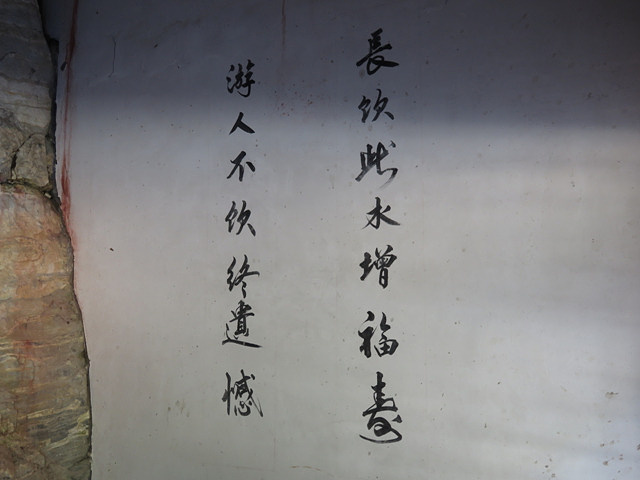 長饮此水增福寿
游人不饮终遺憾